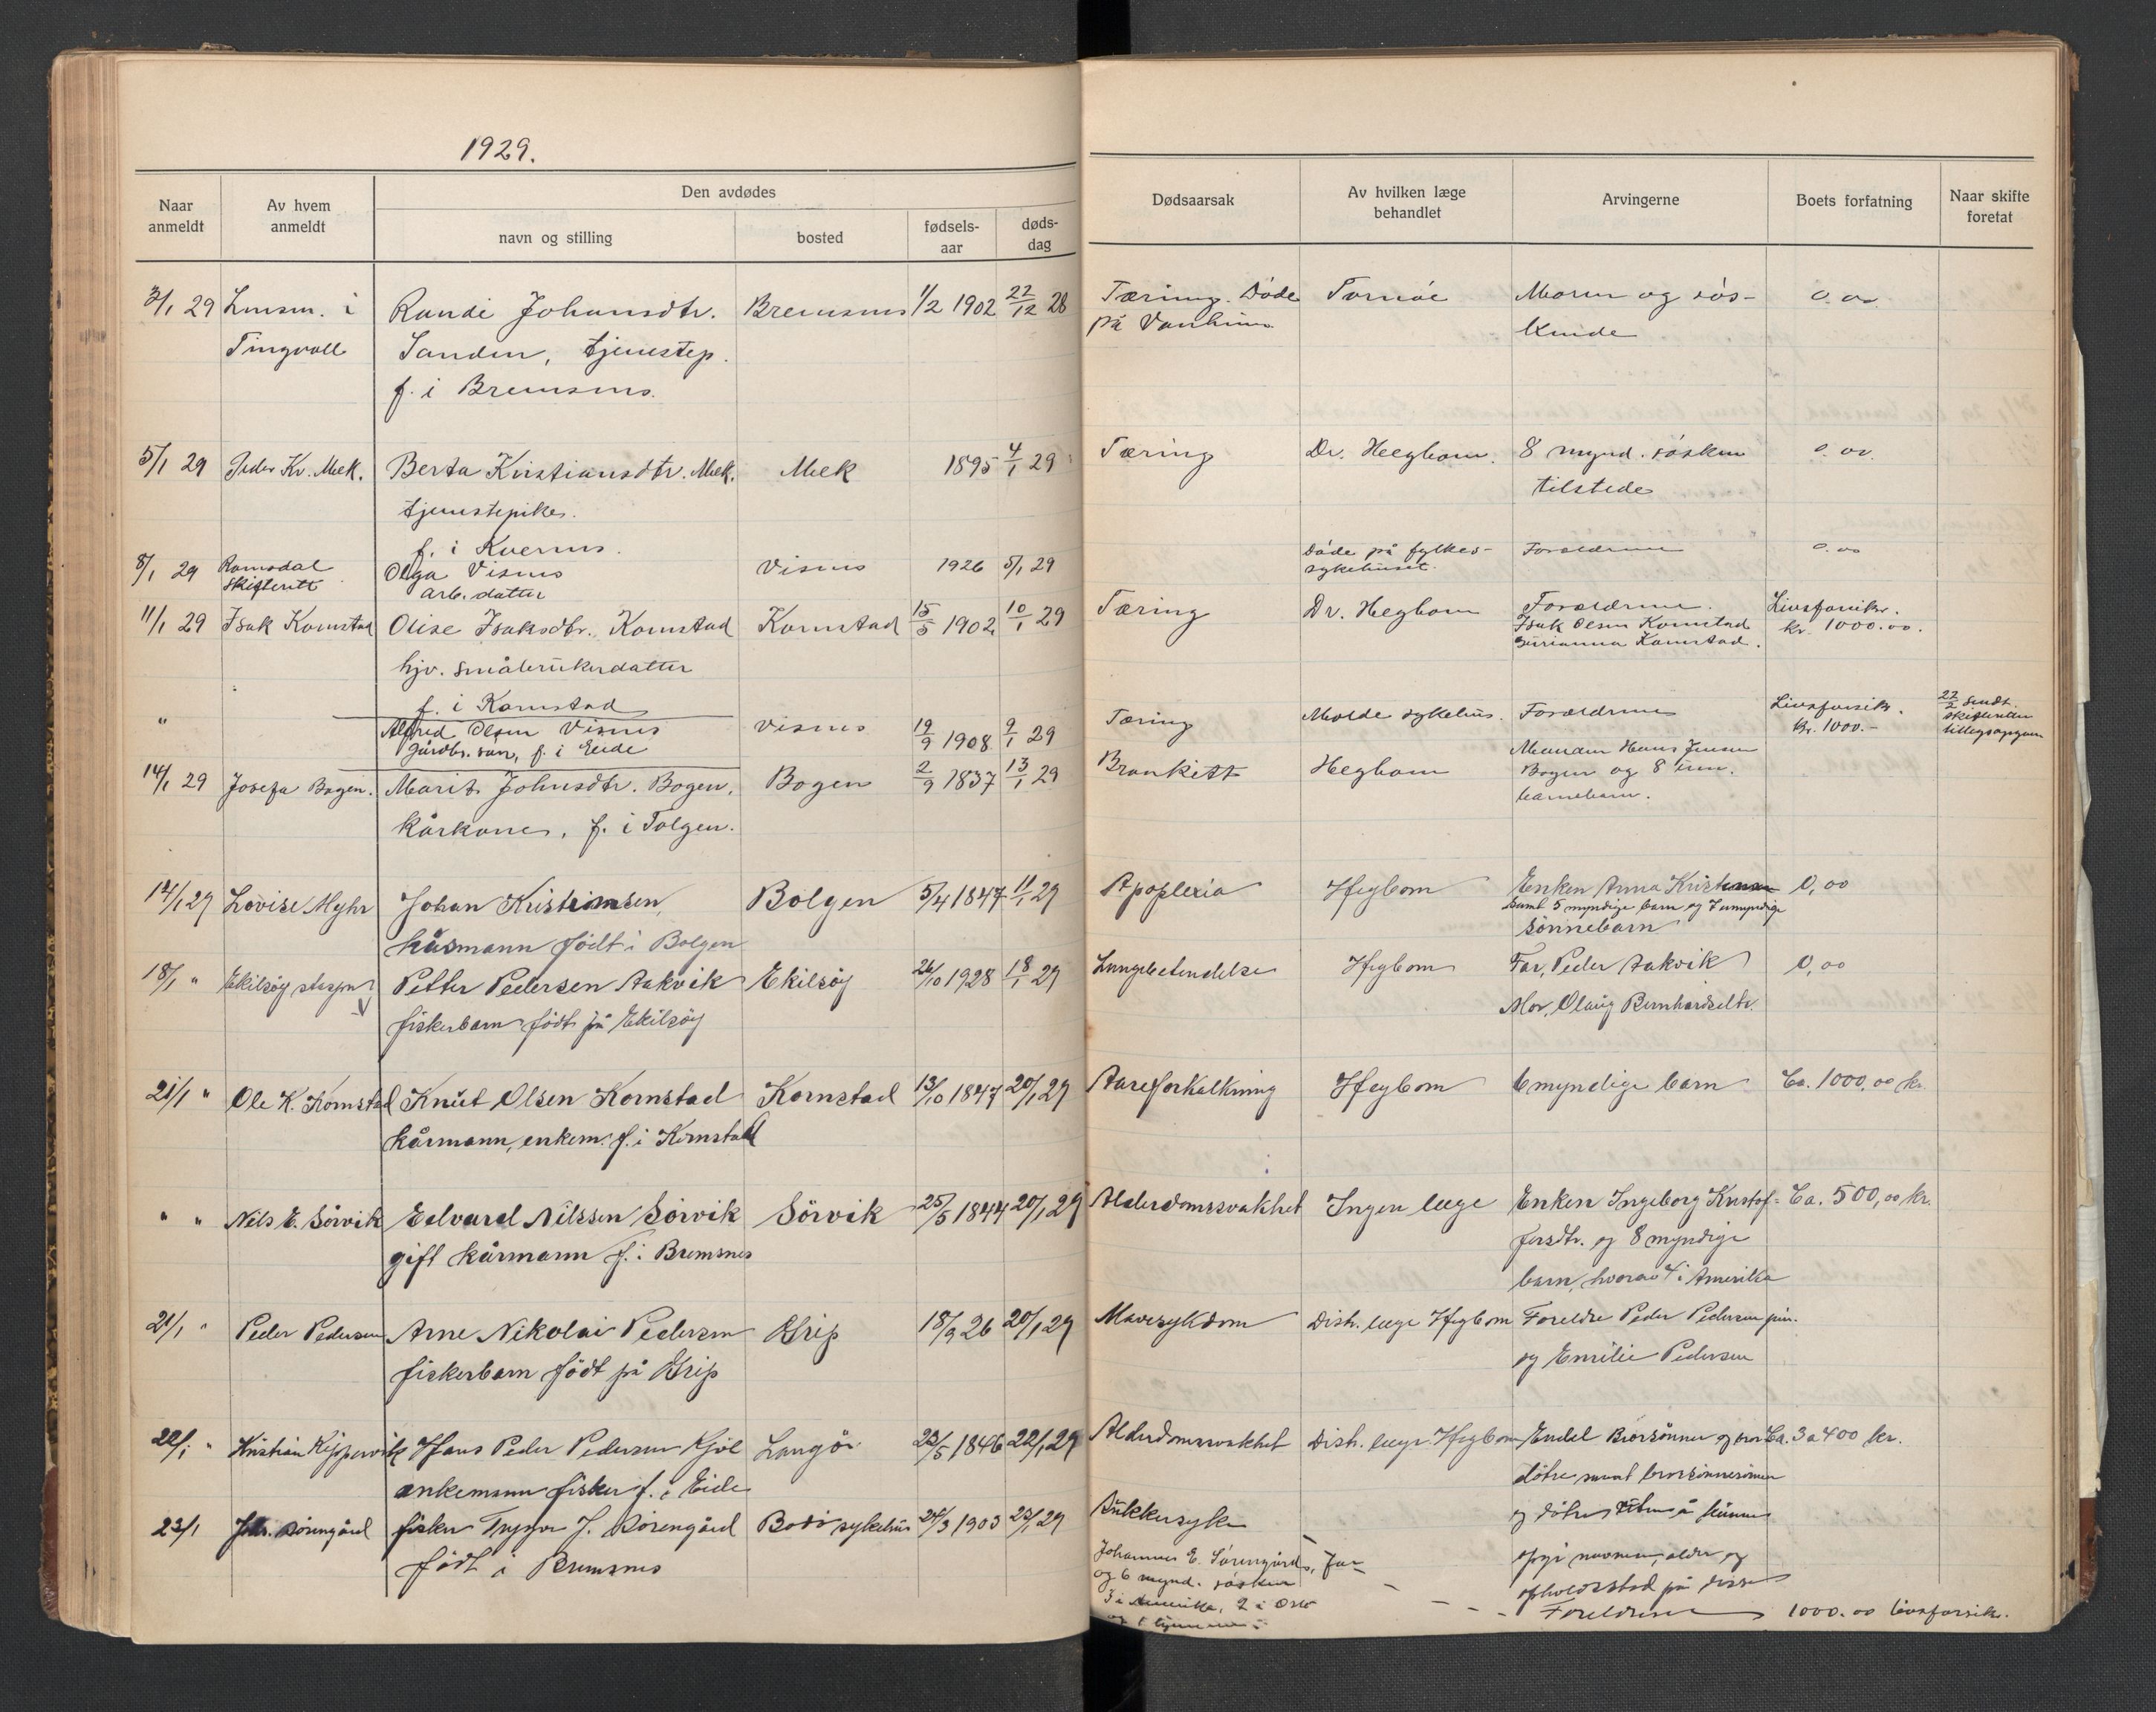 1929.
Naar anmeldt
Av hvem anmeldt
Den avdødes
navn og stilling
bosted
fødsels-aar
døds-dag
Dødsaarsak
Av hvilken læge behandlet
Arvingerne
Boets forfatning
Naar skifte foretat
3/1 29 Lensm. i Randi Johansdtr. Bremsnes 1/2 1902 22/12 28 Tæring. Døde Tornöe Moren og søs- 0.00
Tingvoll Sanden, tjenestep. på kende
f. i Bremsnes.
5/1 29 Peder Kr. Mek. Berta Kristiansdtr. Mek. Mek 1895 4/1 29 Tæring Dr. Hegbom. 8 mynd. søsken 0.00
tjenestepike. tilstede
f. i Kvernes.
8/1 29 Romsdal Olga Visnes Visnes 1926 5/1 29 Døde på fylkes- Foreldrene 0.00
skifterett arb. datter sykehuset.
11/1 29 Isak Kornstad Olise Isaksdtr. Kornstad Kornstad 15/5 1902 10/1 29 Tæring Dr. Hegbom Forældrene. Livsforsikr.
Isak Olsen Kornstad kr. 1000.00.
Kornstad.
hjv. småbrukerdatter
f. i Kornstad
" Alfred Olsen Visnes Visnes 19/9 1908 9/1 29 Tæring Molde sykehus. Forældrene Livsforsik. 22/2 sendt
gårdbr. søn, f. i Eide Kr. 1000.- skifteretten
14/1 29 Josefa Bogen. Marit Johnsdtr. Bogen. Bogen 2/9 1837 13/1 29 Bronkitt Hegbom Mannen Hans Jensen
Bogen og 8
Kårkone, f. i Tolgen. barnebarn.
14/1 29 Lovise Myhr Johan Kristiansen, Bolgen 5/4 1847 11/1 29 Apoplexia Hegbom Enken Anna 0,00
samt 5 myndige barn og 7 umyndige
kårmann født i Bolgen sønnebarn
18/1 " Ekilsøy stasjon Petter Pedersen Aakvik Ekilsøy 26/10 1928 18/1 29 Lungebetendelse Hegbom Far, Peder Aakvik 0,00
fiskerbarn født på Ekilsøy Mor, Olaug Bernhardsdtr.
21/1 " Ole K. Kornstad Knut Olsen Kornstad Kornstad 13/10 1847 20/1 29 Aareforkalkning Hegbom 6 myndige barn Ca. 1000,00 kr.
kårmann, enkem. f. i Kornstad
" " Nils E. Sörvik Edvard Nilssen Sörvik Sörvik 25/5 1844 20/1 29 Alderdomssvakhet Ingen læge Enken Ingeborg Kristof- Ca. 500,00 kr.
gift kårmann f. i Bremsnes fersdtr. og 8 myndige
barn, hvorav 4 i Amerika
21/1 " Peder Pedersen Arne Nikolai Pedersen Grip 18/9 26 20/1 29 Mavesykdom Distr. læge Hegbom Foreldre Peder Pedersen jun.
fiskerbarn født på Grip og Emilie Pedersen
22/1 " Kristian Hans Peder Pedersen Kjöl Langöi 23/5 1846 22/1 29 Alderdomssvakhet Distr. læge Hegbom Endel Brorsønner og bror Ca. 3 a 400 kr.
enkemann fisker f. i Eide døtre samt brorsønnesønner
og døtre uten å kunne
opgi navnene, alder og
opholdsstad på disse
23/1 Joh. Sørengård fisker Trygve J. Sørengård Bodø sykehus 24/3 1903 23/1 29 Sukkersyke
født i Bremsnes
Johannes E. Sørengård, far
og 6 mynd. søsken
3 i Amerika, 2 i Oslo
og 1 hjemme.
Foreldrene 1000.00 livsforsik.